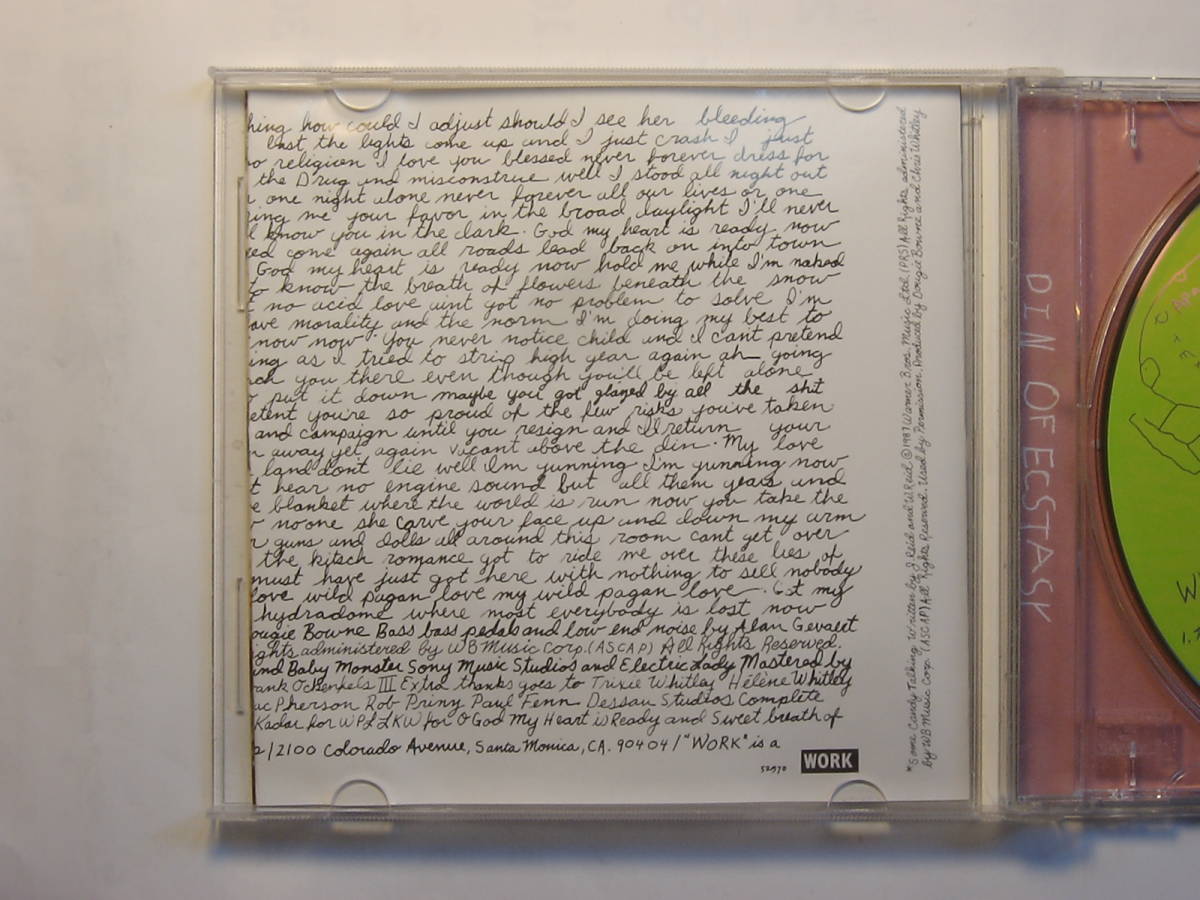 hing how could I adjust should I see her bleeding
last the lights come up and I just crash I just
o religion I love you blessed never forever dress for
the Drug and misconstrue well I stood all night out
one night alone never forever all our lives or one
ing me your favor in the broad daylight I'll never
l know you in the dark. God my heart is ready now
ed come again all roads lead back on into town
God my heart is ready now hold me while I'm naked
to know the breath of flowers beneath the snow
t no acid love aint got no problem to solve I'm
ave morality and the norm I'm doing my best to
now now. You never notice child and I cant pretend
ing as I tried to strip high year again ah going
ch you there even though you'll be left alone
put it down maybe you got glazed by all the shit
etent you're so proud of the few risks you've taken
and campaign until you resign and I'll return your
n away yet again vacant above the din. My love
land dont lie well Im gunning I'm gunning now
t hear no engine sound but all them years and
e blanket where the world is run now you take the
r noone she carve your face up and down my arm
r guns and dolls all around this room cant get over
the kitsch romance got to ride me over these lies of
must have just got here with nothing to sell nobody
love wild pagan love my wild pagan love. Get my
hydradome where most everybody is lost now
ougie Bowne Bass bass pedals and low end noise by Alan Gevaert
ights administered by WB Music Corp. (ASCAP) All Rights Reserved.
and Baby Monster Sony Music Studios and Electric Lady Mastered by
ank Ochenfels III Extra thanks goes to Trixie Whitley Hélène Whitley
ac Pherson Rob Priny Paul Fenn Dessau Studios Complete
Kadar for WPLLKW for O God My Heart is Ready and Sweet breath of
/2100 Colorado Avenue, Santa Monica, CA. 90404/"WORK" is a
52970 WORK
*Some Candy Talking Written by J Reid and W Reid ©1987 Warner Bros. Music Ltd. (PRS) All Rights administered
by WB Music Corp. (ASCAP) All Rights Reserved. Used by Permission. Produced by Dougie Bowne and Chris Whitley
DIN OF ECSTASY
W
1.